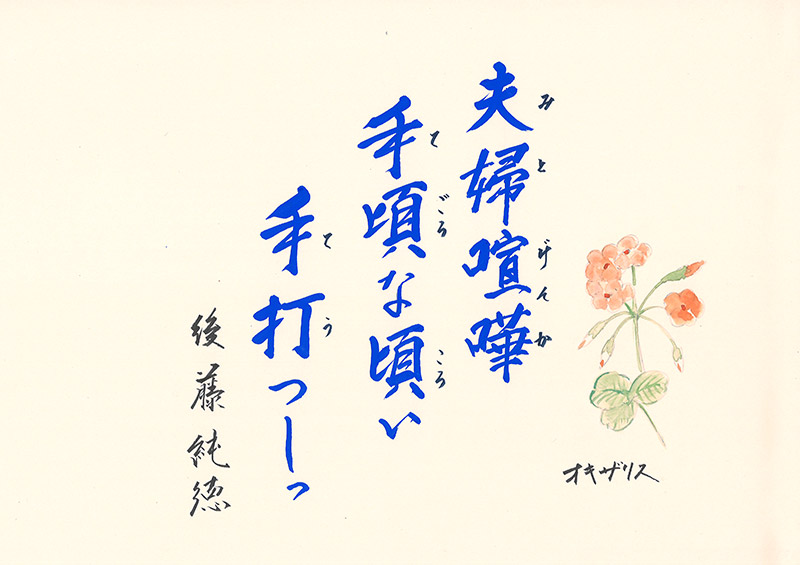 オキザリス
夫婦喧嘩
みとげんか
手頃な頃い
てごろころ
手打つしっ
てう
後藤純徳